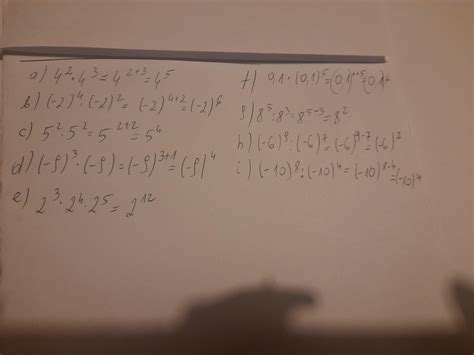 a) 4² · 4³ = 4²⁺³ = 4⁵
b) (-2)⁴ · (-2)² = (-2)⁴⁺² = (-2)⁶
c) 5² · 5² = 5²⁺² = 5⁴
d) (-9)³ · (-9) = (-9)³⁺¹ = (-9)⁴
e) 2³ · 2⁴ · 2⁵ = 2¹²
f) 0,1 · (0,1)⁵ = (0,1)¹⁺⁵ = (0,1)⁶
g) 8⁵ : 8³ = 8⁵⁻³ = 8²
h) (-6)⁹ : (-6)⁷ = (-6)⁹⁻⁷ = (-6)²
i) (-10)⁸ : (-10)⁴ = (-10)⁸⁻⁴ = (-10)⁴